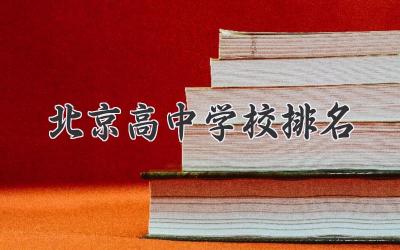 北京高中学校排名